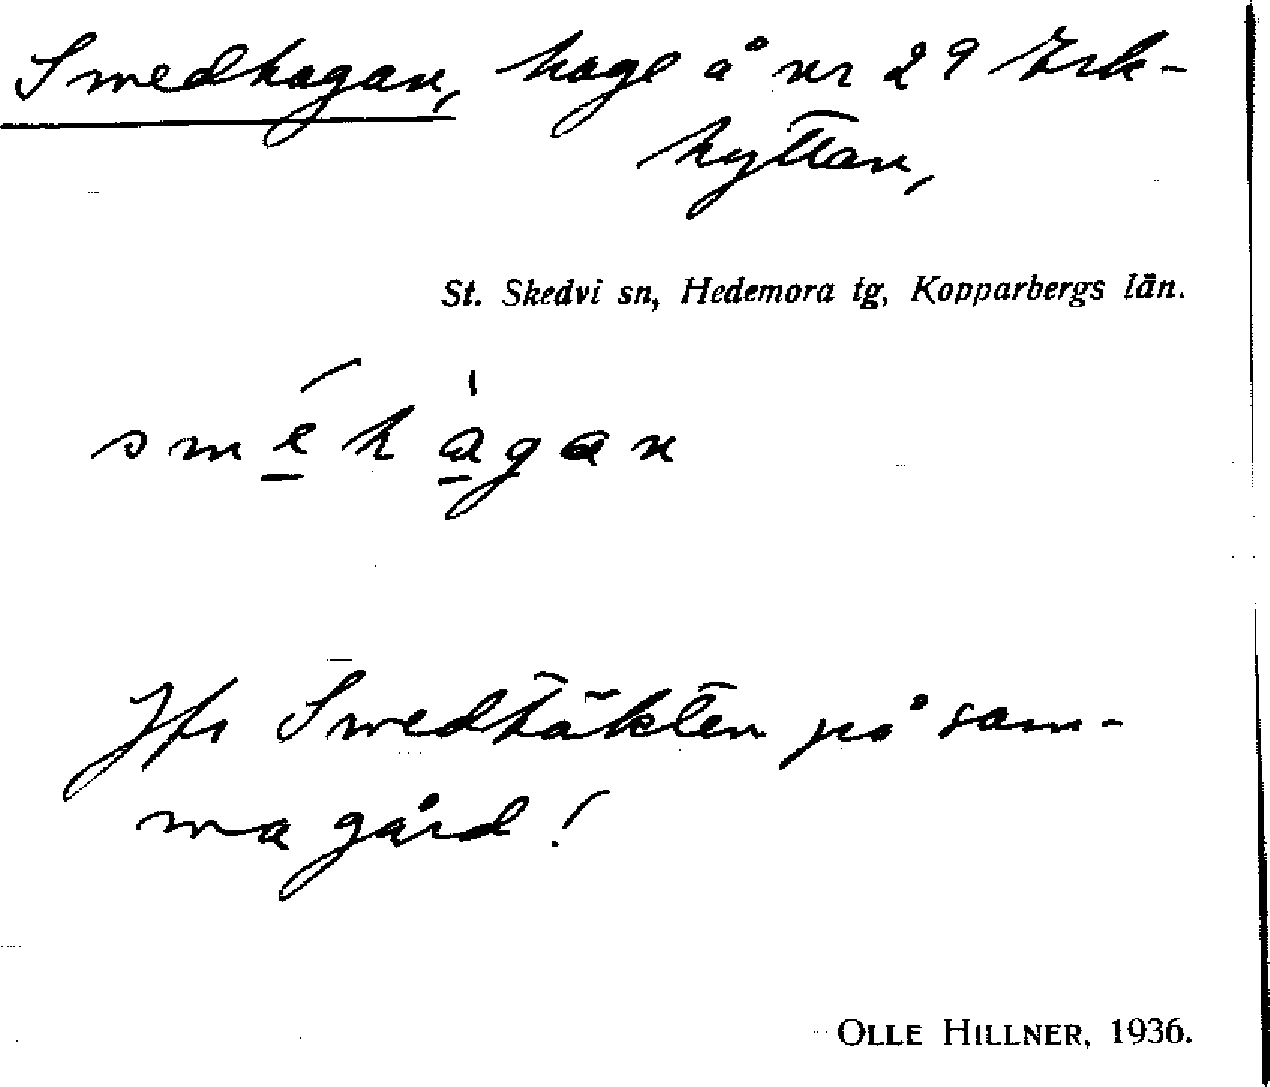 Smedhagan, hage å nr 29 Erk-
hyttan,
St. Skedvi sn, Hedemora tg, Kopparbergs län.
sméhàgan
Jfr Smedtäkten på sam-
ma gård!
OLLE HILLNER, 1936.